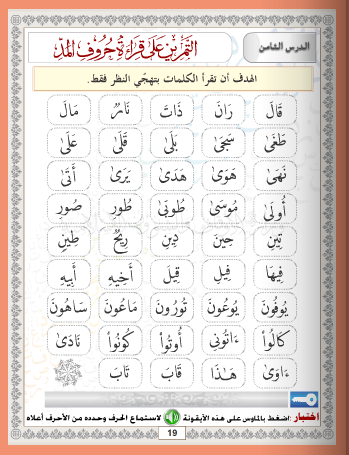 الدرس الثامن
التَّمْرِينُ عَلَى قِرَاءَةِ حُرُوفِ المَدِّ
الهدف أن تقرأ الكلمات بتهجّي النظر فقط.
قَالَ رَانَ ذَاتَ نَارٌ مَالَ
طَغَىٰ سَجَىٰ بَلَىٰ قَلَىٰ عَلَىٰ
نَهَىٰ هَوَىٰ هَدَىٰ يَرَىٰ أَتَىٰ
أُولَىٰ مُوسَىٰ طُوبَىٰ طُورِ صُورِ
تِينِ حِينَ دِينِ رِيحٌ طِينٍ
فِيهَا فِيلِ قِيلَ أَخِيهِ أَبِيهِ
يُوفُونَ يُوعُونَ تُورُونَ مَاعُونَ سَاهُونَ
كَالُواْ ءَاتُونِي أُوتُواْ كُونُواْ نَادَىٰ
ءَاوَىٰ هَـٰذَا قَابَ تَابَ
إختبار : اضغط بالماوس على هذه الأيقونة لاستماع الحرف وحدده من الأحرف أعلاه
19